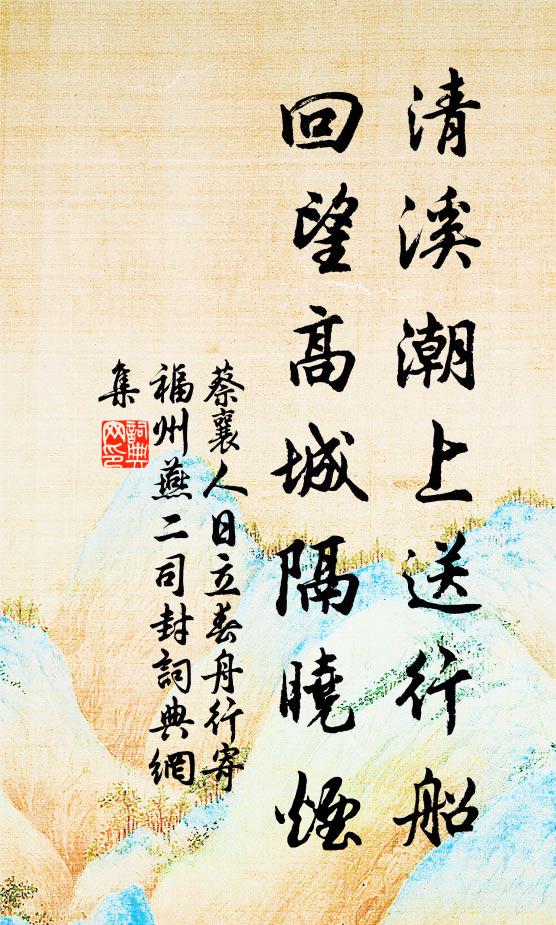 清溪潮上送行船
回望高城隔曉煙
蔡襄人日立春舟行寄
福州燕二司封詞典網
集
詞典
网印